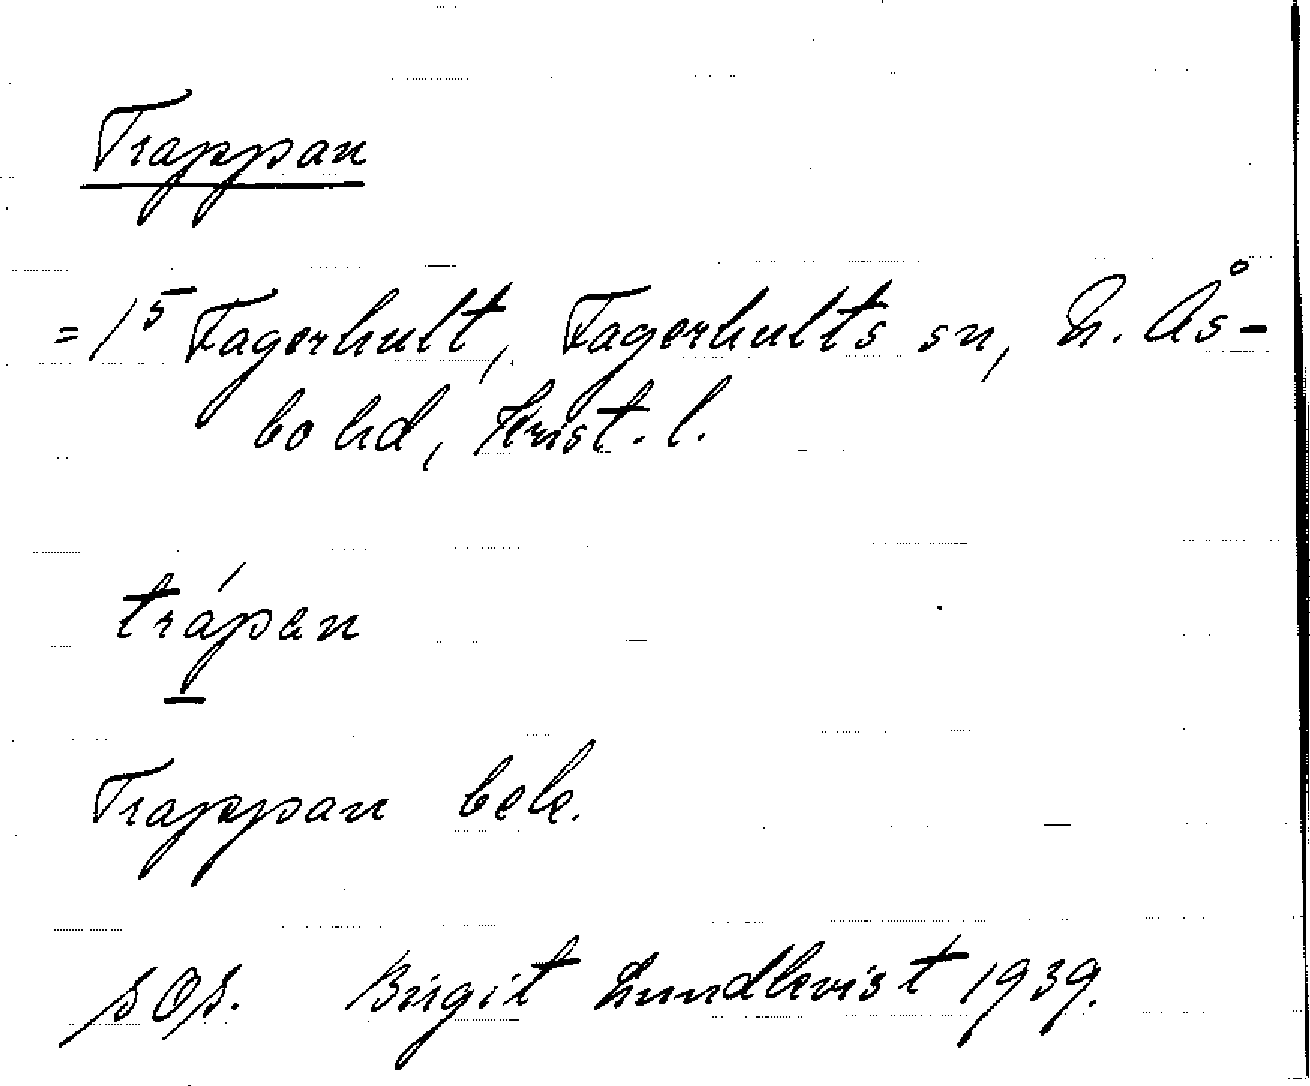 Trappan
= 1⁵ Fagerhult, Fagerhults sn, N. Ås-
bo hd, Krist. l.
trápan
Trappan bebe.
SOS. Birgit Lundkvist 1939.